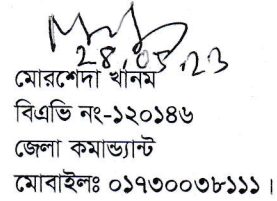 28.05.23
মোরশেদা খানম
বিএভি নং-১২০১৪৬
জেলা কমান্ড্যান্ট
মোবাইলঃ ০১৭৩০০৩৮১১১।